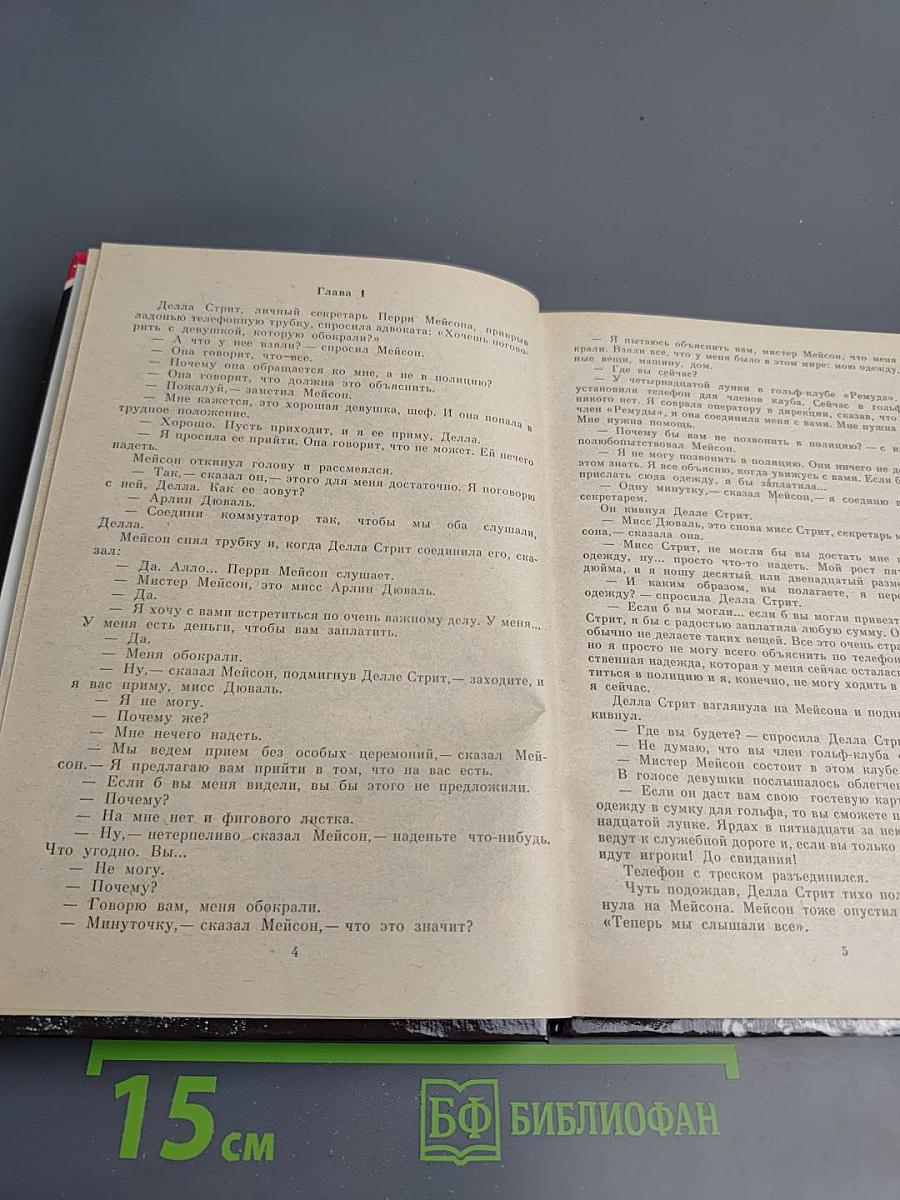 Глава 1
Делла Стрит, личный секретарь Перри Мейсона, прикрыв
ладонью телефонную трубку, спросила адвоката: «Хочешь погово-
рить с девушкой, которую обокрали?»
— А что у нее взяли? — спросил Мейсон.
— Она говорит, что все.
— Почему она обращается ко мне, а не в полицию?
— Она говорит, что должна это объяснить.
— Пожалуй,— заметил Мейсон.
— Мне кажется, это хорошая девушка, шеф. И она попала в
трудное положение.
— Хорошо. Пусть приходит, и я ее приму, Делла.
— Я просила ее прийти. Она говорит, что не может. Ей нечего
надеть.
Мейсон откинул голову и рассмеялся.
— Так,— сказал он,— этого для меня достаточно. Я поговорю
с ней, Делла. Как ее зовут?
— Арлин Дюваль.
— Соедини коммутатор так, чтобы мы оба слушали,
Делла.
Мейсон снял трубку и, когда Делла Стрит соединила его, ска-
зал:
— Да. Алло... Перри Мейсон слушает.
— Мистер Мейсон, это мисс Арлин Дюваль.
— Да.
— Я хочу с вами встретиться по очень важному делу. У меня...
У меня есть деньги, чтобы вам заплатить.
— Да.
— Меня обокрали.
— Ну,— сказал Мейсон, подмигнув Делле Стрит,— заходите, и
я вас приму, мисс Дюваль.
— Я не могу.
— Почему же?
— Мне нечего надеть.
— Мы ведем прием без особых церемоний,— сказал Мей-
сон.— Я предлагаю вам прийти в том, что на вас есть.
— Если б вы меня видели, вы бы этого не предложили.
— Почему?
— На мне нет и фигового листка.
— Ну,— нетерпеливо сказал Мейсон,— наденьте что-нибудь.
Что угодно. Вы...
— Не могу.
— Почему?
— Говорю вам, меня обокрали.
— Минуточку,— сказал Мейсон,— что это значит?
4
— Я пытаюсь объяснить вам, мистер Мейсон, что меня
крали. Взяли все, что у меня было в этом мире: мою одежду,
ные вещи, машину, дом.
— Где вы сейчас?
— У четырнадцатой лунки в гольф-клубе «Ремуда».
установили телефон для членов клуба. Сейчас в гольф
никого нет. Я соврала оператору в дирекции, сказав, что
член «Ремуды», и она соединила меня с вами. Мне нужна
Мне нужна помощь.
— Почему бы вам не позвонить в полицию? — с
полюбопытствовал Мейсон.
— Я не могу позвонить в полицию. Они ничего не
этом знать. Я все объясню, когда увижусь с вами. Если б
прислать сюда одежду, я бы заплатила...
— Одну минутку,— сказал Мейсон,— я соединю
секретарем.
Он кивнул Делле Стрит.
— Мисс Дюваль, это снова мисс Стрит, секретарь
сона,— сказала она.
— Мисс Стрит, не могли бы вы достать мне
одежду, ну... просто что-то надеть. Мой рост
дюйма, и я ношу десятый или двенадцатый
— И каким образом, вы полагаете, я
одежду? — спросила Делла Стрит.
— Если б вы могли... если б вы могли
Стрит, я бы с радостью заплатила любую сумму.
обычно не делаете таких вещей. Все это очень
но я просто не могу всего объяснить по
ственная надежда, которая у меня сейчас
титься в полицию и я, конечно, не могу ходить в
я сейчас.
Делла Стрит взглянула на Мейсона и
кивнул.
— Где вы будете? — спросила Делла
— Не думаю, что вы член гольф-клуба
— Мистер Мейсон состоит в этом клубе
В голосе девушки послышалось
— Если он даст вам свою гостевую
одежду в сумку для гольфа, то вы сможете
надцатой лунке. Ярдах в пятнадцати за
ведут к служебной дороге и, если вы только
идут игроки! До свидания!
Телефон с треском разъединился.
Чуть подождав, Делла Стрит тихо
нула на Мейсона. Мейсон тоже опустил
«Теперь мы слышали все».
5
15 см
БФ БИБЛИОФАН